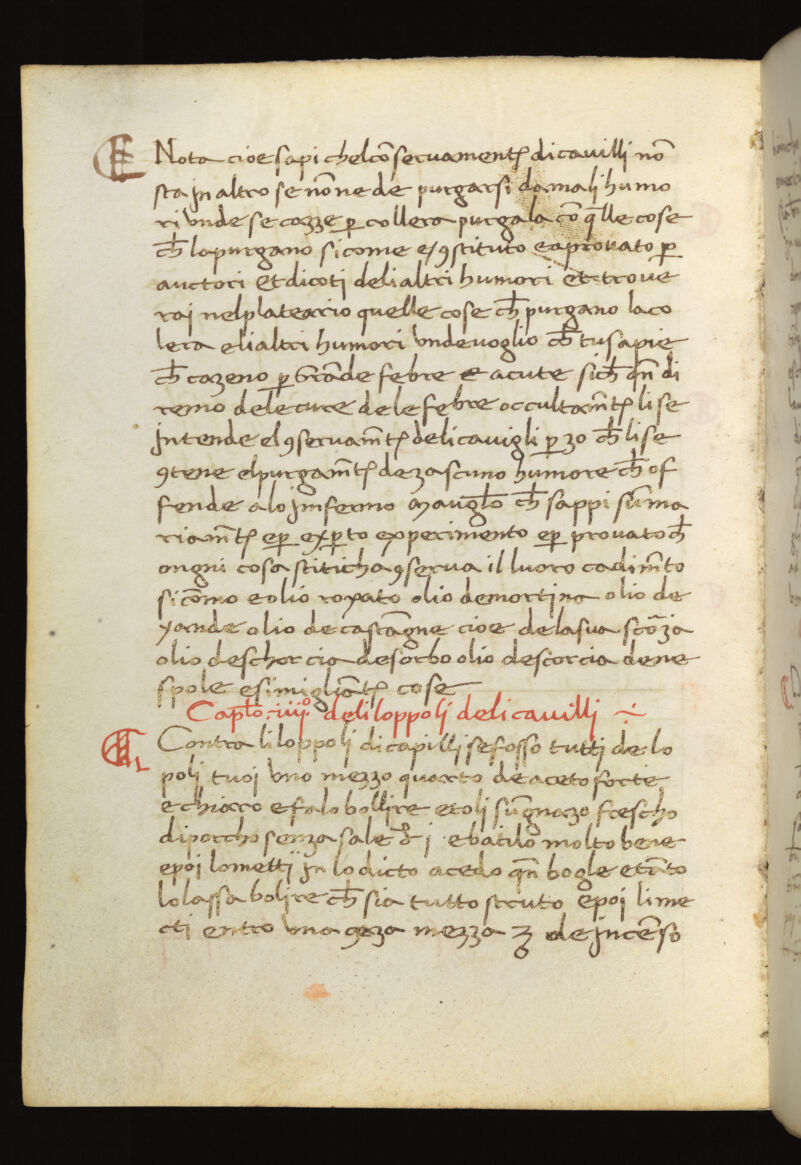 Nota cioe sapi chel cōseruamentꝫ di cauilli nō
sta jn altro se nōne de purgarsi da mali humo
ri Unde se cazze ꝑ collera purgala cō q̄lle cose
ch̄ lo purgano si come e ꝯstituto e aprouato ꝑ
auctori et dicoti deli altri humori et troue
raj nel plateario quelle cose ch̄ purgano la co
lera e li altri humori Unde uoglio ch̄ tu sapie
ch̄ cazeno ꝑ Grāde febre e acute sich̄ qn̄ di
remo dele cure dele febre occultam̄tꝫ li se
jntende el ꝯseruam̄tꝫ deli cauigli ꝑ zo ch̄ li se
ꝯtene el purgam̄tꝫ de zascuno humore ch̄ of
fende a lo jnfermo ch̄ sappi sūma
riam̄tꝫ eꝑ exꝑto experimento eꝑ prouato ch̄
ongni cosa stiticha ꝯserua il luoro cadim̄to
si cōmo e olio roxato olio de mortina olio de
yande olio de castāgne cioe dela sua scōza
olio de schorcia de sorbo olio de scorcia de ne
spole e simigliātꝫ cose
Caplō .iiijº. deli loppoli deli cauilli ÷
Contra li loppolj di capillj se fosso tutti de lo
polj tuoj Uno mezzo quarto de aceto forte
e chiaro e falo bollire et oli sūgnazo frescho
di porcho senza sale j e batilo molto bene
e poi lo mettij jn lo dicto acedo qn̄ bogle et tāto
lo lassa bolire ch̄ sia tutto struto e poi li me
cti entro Una mezza ʒ de jncēso